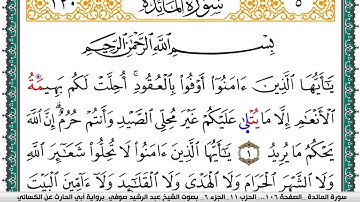 ١٢٠ سُورَةُ المَائِدَة ٥
بِسْمِ اللَّهِ الرَّحْمَٰنِ الرَّحِيمِ
يَٰٓأَيُّهَا الَّذِينَ ءَامَنُوٓا أَوْفُوا بِالْعُقُودِ ۚ أُحِلَّتْ لَكُم بَهِيمَةُ
الْأَنْعَٰمِ إِلَّا مَا يُتْلَىٰ عَلَيْكُمْ غَيْرَ مُحِلِّي الصَّيْدِ وَأَنتُمْ حُرُمٌ ۗ إِنَّ اللَّهَ
يَحْكُمُ مَا يُرِيدُ ١ يَٰٓأَيُّهَا الَّذِينَ ءَامَنُوا لَا تُحِلُّوا شَعَٰٓئِرَ اللَّهِ
وَلَا الشَّهْرَ الْحَرَامَ وَلَا الْهَدْيَ وَلَا الْقَلَٰٓئِدَ وَلَآ ءَآمِّينَ الْبَيْتَ
سورة المائدة - الصفحة ١٠٦ - الحزب ١١ - الجزء ٦ - بصوت الشيخ عبد الرشيد صوفي - برواية أبي الحارث عن الكسائي